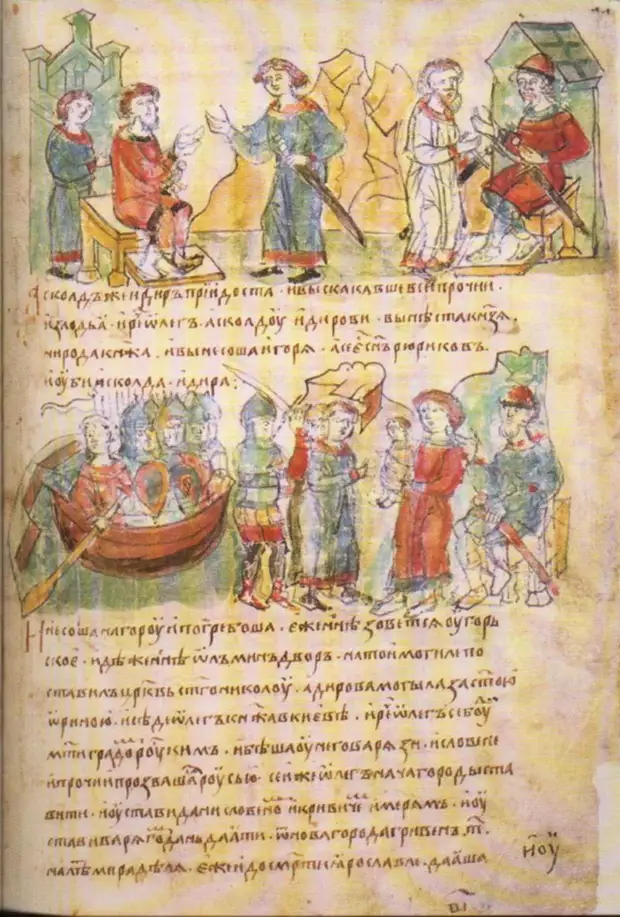 Асколдъ же и Диръ придоста · и выскакавше вси прочии
из лодьꙗ · и реⷱ҇ ѡлегъ асколдоу и дирови · вы нѣста кнѧзѧ
ни рода кнѧжа · и вынесоша игорѧ · а се есⷮ҇ сн҃ъ рюриковъ
и оубиша асколда · и дира :
И несоша на гороу и погребоша · еже нн҃ѣ зоветсѧ оугорь
ское · идѣже нн҃ѣ ѡлъминъ дворъ · на тои могиле по
ставилъ цр҃квь ст҃го николоу · а дирова могыла за ст҃ою
ѡриною · и сѣде ѡлегъ кнѧжа в киевѣ · и реⷱ҇ ѡлегъ се боудⷤ҇
мт҃и градомъ роускимъ · и бѣша оу него варѧзи · и словене
и прочии прозвашасѧ роусью · сеи же ѡлегъ нача городы ста
вити · и оустави дани словеномъ и кривичемъ и мерѧмъ · и оу
стави варѧгомъ дань даꙗти · ѿ новагорода гривенъ · т҃ ·
на лⷮ҇ѣ мира дѣлѧ · еже и до смрт҃и ꙗрославлѧ · даꙗша
и оу